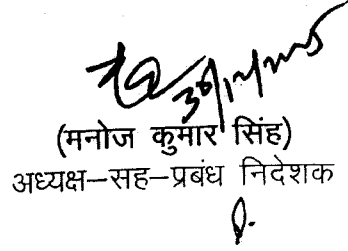 (मनोज कुमार सिंह)
अध्यक्ष–सह–प्रबंध निदेशक